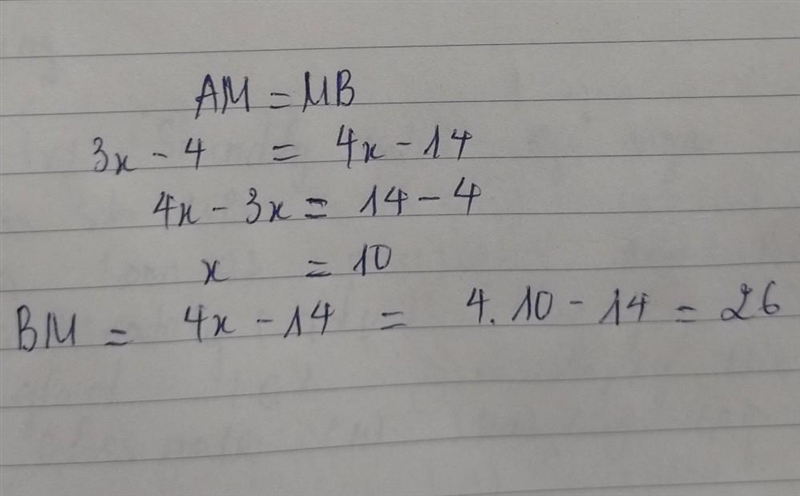 AM = MB
3x - 4 = 4x - 14
4x - 3x = 14 - 4
x = 10
BM = 4x - 14 = 4. 10 - 14 = 26